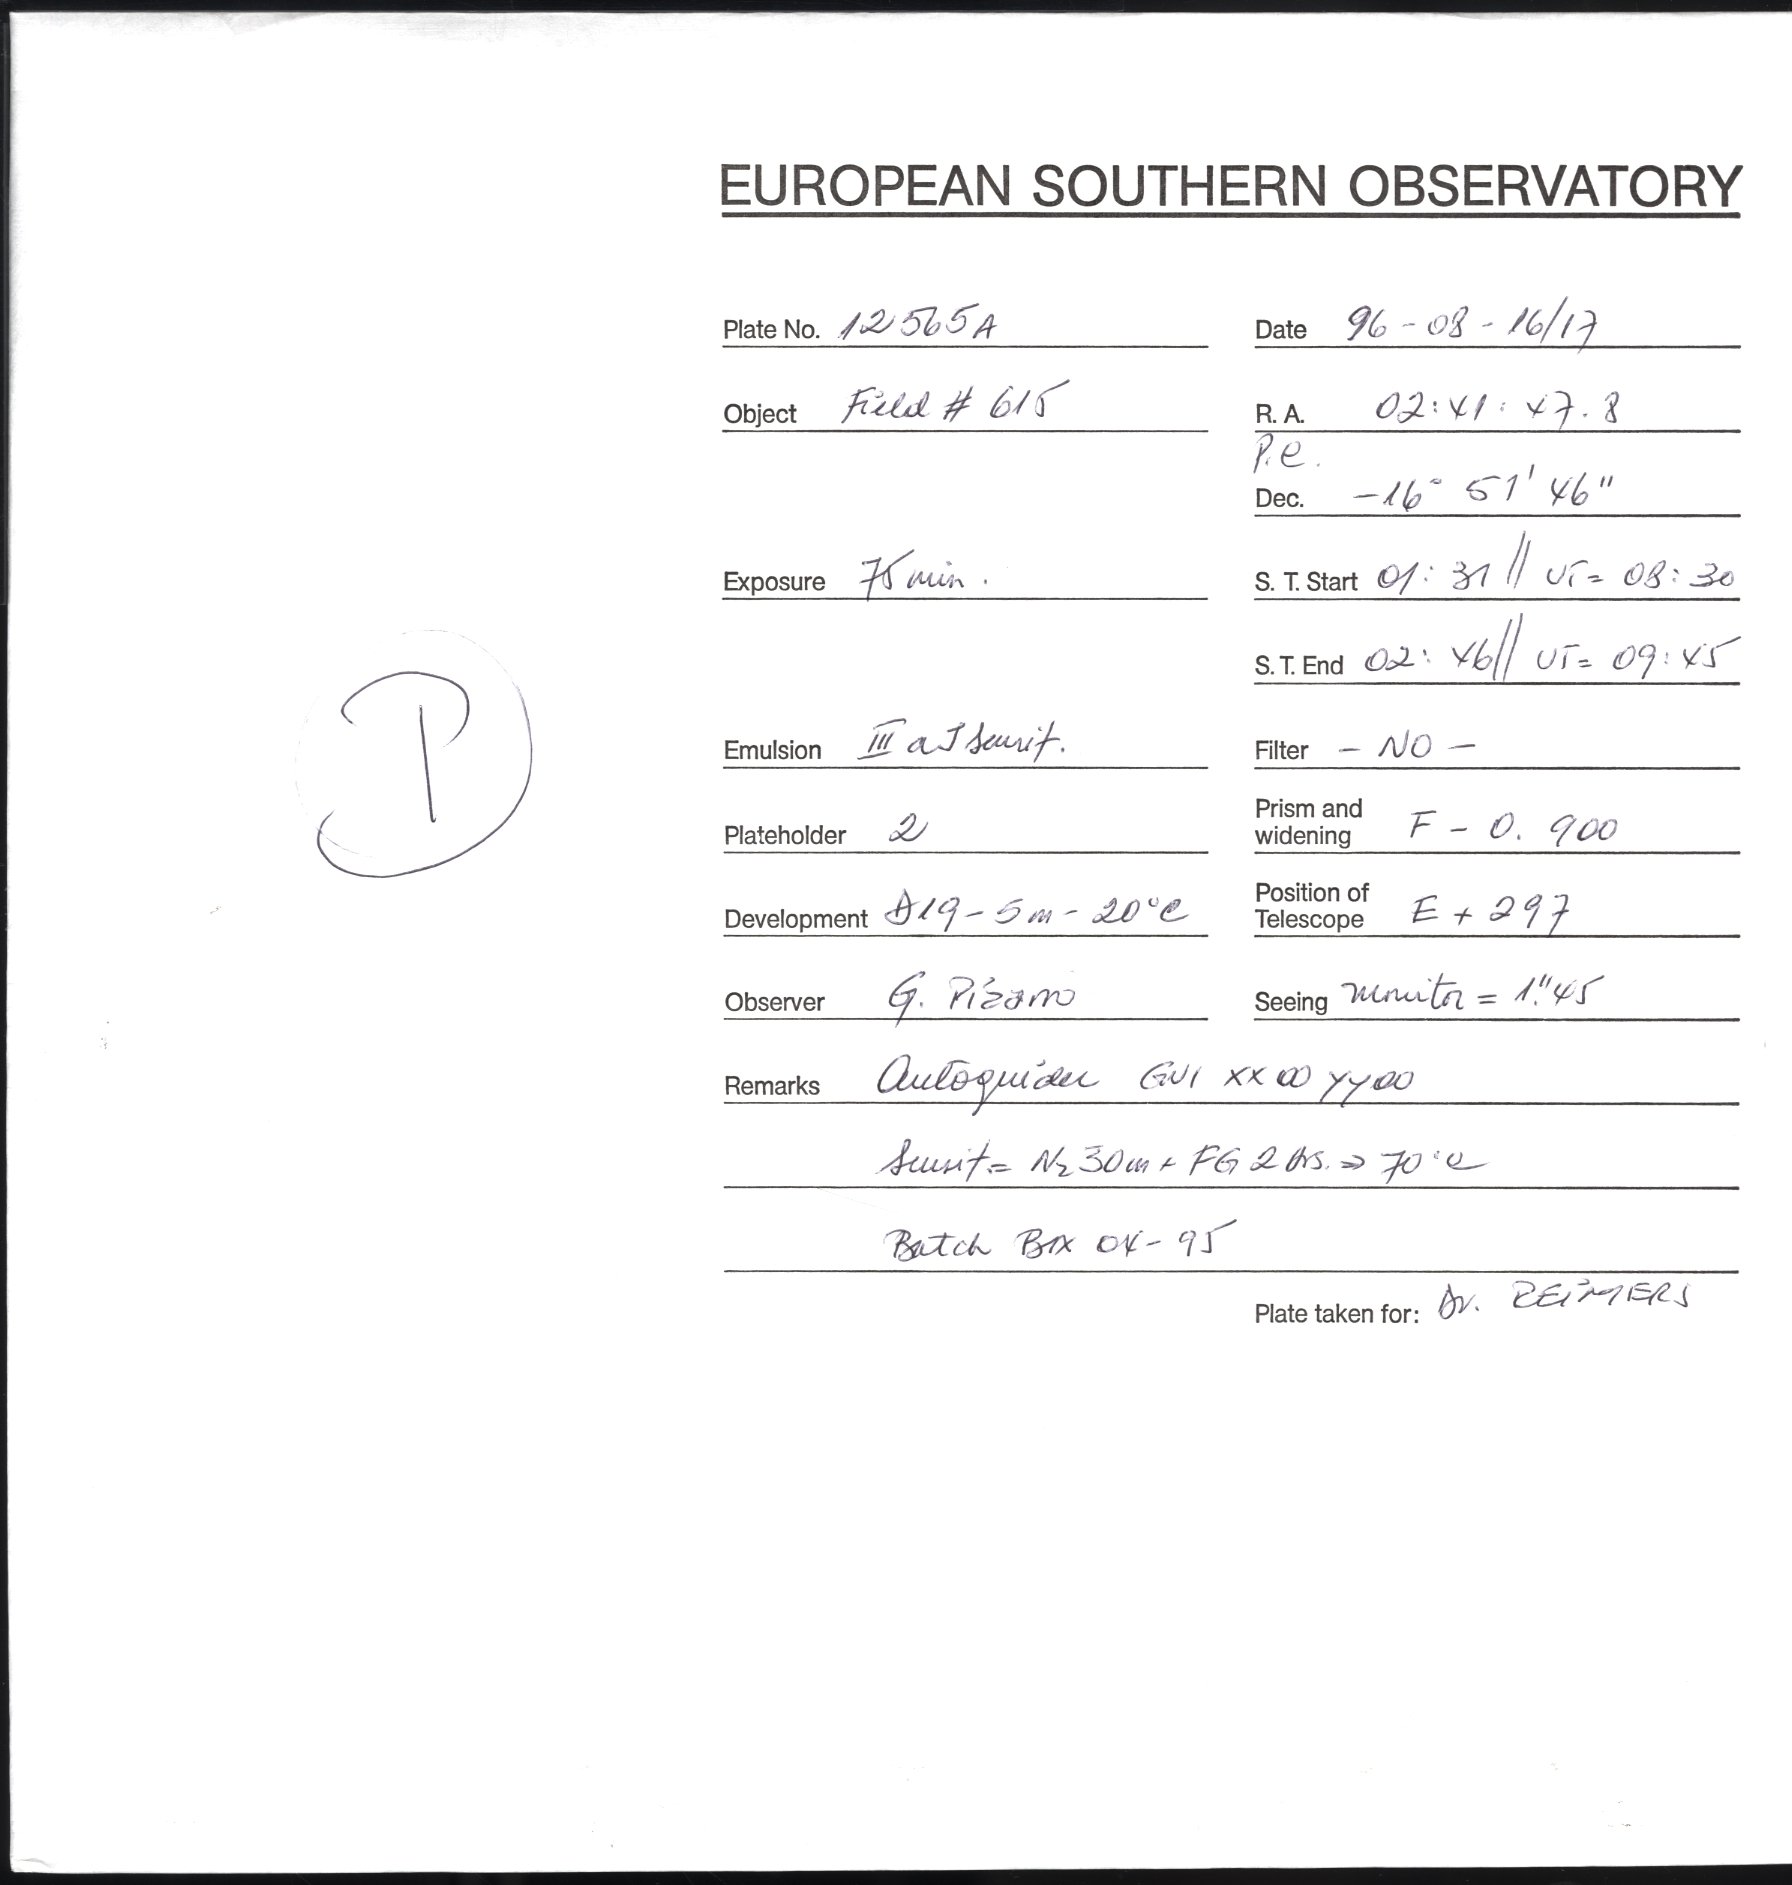 EUROPEAN SOUTHERN OBSERVATORY
Plate No. 12565A Date 96-08-16/17
Object Field # 615 R. A. 02:41:47.8
P.e.
Dec. -16° 51' 46"
Exposure 75 min. S. T. Start 01:31 // UT= 08:30
S. T. End 02:46 // UT= 09:45
Emulsion III a J Sensit. Filter - NO -
Plateholder 2 Prism and widening F - 0.900
Development D19 - 5m - 20°C Position of Telescope E + 297
Observer G. Pizarro Seeing Monitor = 1."45
Remarks Autoguider GV1 XX00 YY00
Sensit= N2 30m + FG 2 hrs. => 70°C
Batch Box 04-95
Plate taken for: Dr. REIMERS
P